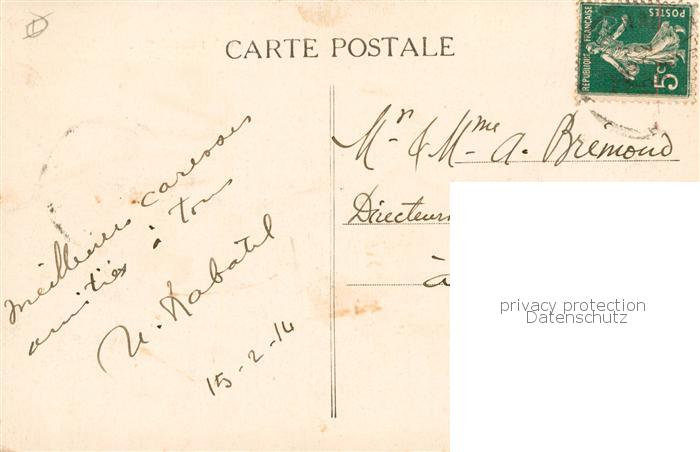 CARTE POSTALE
RÉPUBLIQUE FRANÇAISE
POSTES
5c
Mr & Mme A. Brémond
Directeur
à
Meilleures caresses
amitiés à tous
15-2-14
privacy protection
Datenschutz